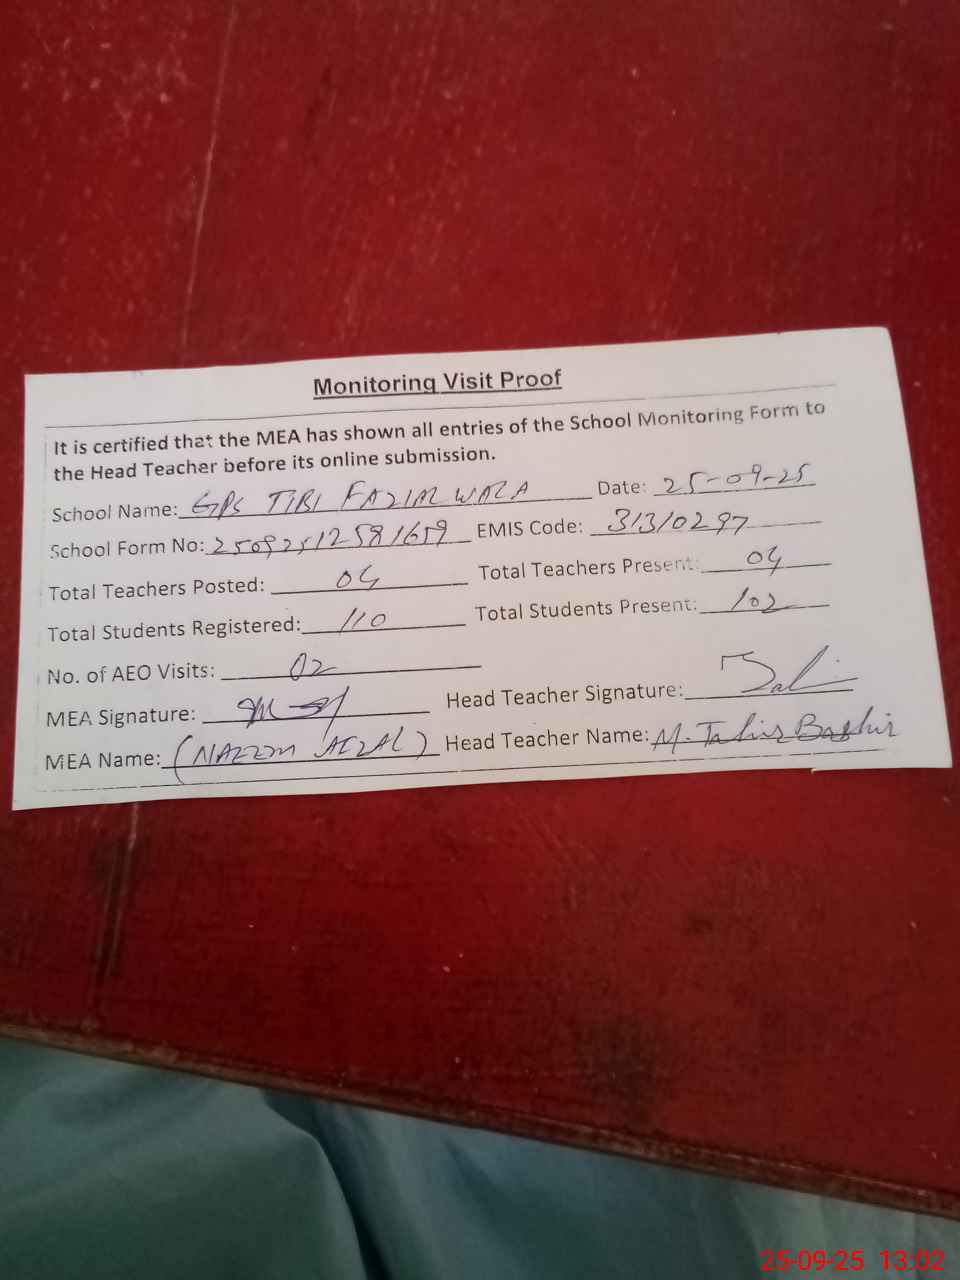 Monitoring Visit Proof
It is certified that the MEA has shown all entries of the School Monitoring Form to
the Head Teacher before its online submission.
School Name: GPS TIBI FAZIAL WALA Date: 25-09-25
School Form No: 25092512581659 EMIS Code: 31310297
Total Teachers Posted: 04 Total Teachers Present: 04
Total Students Registered: 110 Total Students Present: 102
No. of AEO Visits: 02
MEA Signature: Head Teacher Signature:
MEA Name: (NAEEM AFZAL) Head Teacher Name: M. Tahir Bashir
25-09-25 13:02